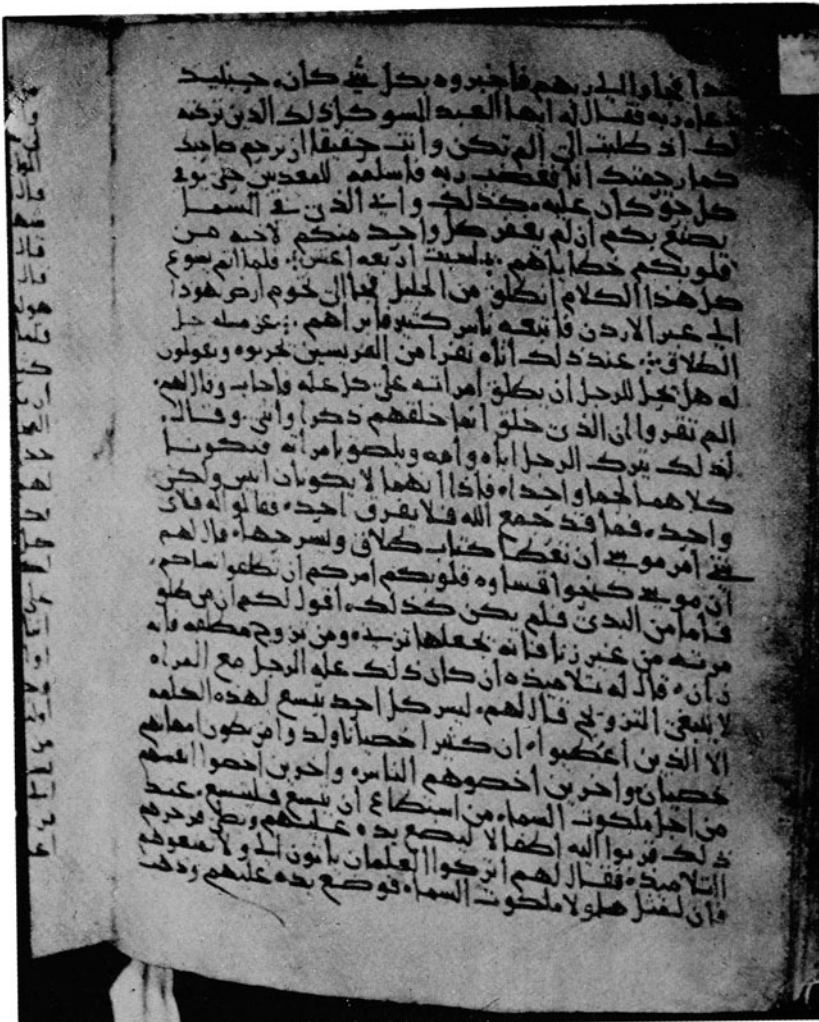 جدا فجاوا الى ربهم فاخبروه بكل شي كان، حينيد
دعاه ربه فقال له ايها العبد السو كل ذلك الدين تركته
لك اذ طلبت الي الم تكن وانت حقيقا ان ترحم صاحبك
كما رحمتك انا فغضب ربه فاسلمه للمعذبين حتى يوفي
كل حق كان عليه، كذلك وابي الذي في السما
يصنع بكم ان لم يغفر كل واحد منكم لاخيه من
قلوبكم خطاياهم فلما اتم يسوع
كل هذا الكلام انطلق من الجليل فجا الى تخوم ارض يهودا
الى عبر الاردن فاتبعه ناس كثير فابراهم
الطلاق عند ذلك اتاه نفرا من الفريسين يجربوه ويقولون
له هل يحل للرجل ان يطلق امراته على كل عله فاجاب وقال لهم
الم تقروا ان الذي خلق انما خلقهم ذكرا وانثى وقال
لذلك يترك الرجل اباه وامه ويلصق بامراته فيكونا
كلاهما لحما واحدا، فاذا انهما لا يكونان اثنين ولكن
واحد، فما قد جمع الله فلا يفرق احد، فقالوا له فلاي
شي امر موسى ان نعطا كتاب طلاق ونسرحها، قال لهم
ان موسى قساوه قلوبكم امركم ان تطلقوا نساكم،
فاما من البدي فلم يكن كذلك، اقول لكم ان من طلق
مرته من غير زنا فانه يجعلها تزنيه ومن تزوج مطلقه فانه
زان، قال له تلاميذه ان كان ذلك عله الرجل مع المراه
لا ينبغي التزويج قال لهم، ليس كل احد يتسع لهذه الكلمه
الا الذين اعطوا، ان كثيرا خصيانا ولدوا من بطون امهاتهم
خصيان واخرين اخصوهم الناس، واخرين اخصوا انفسهم
من اجل ملكوت السما، من استطاع ان يتسع فليتسع، عند
ذلك قربوا اليه اطفالا ليضع يده عليهم فزجرهم
التلاميذ، فقال لهم اتركوا الغلمان ياتون الي ولا تمنعوهم
فان لمثل هاولا ملكوت السما، فوضع يده عليهم وذهب